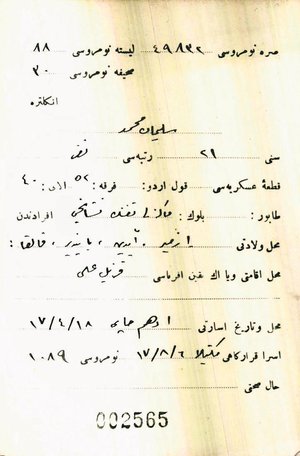 صره نومروسی ٤٩٨٣٢ لیسته نومروسی ٨٨
صحیفه نومروسی ٣٠
انكلتره
سلیمان محمد
سنی ٢١ رتبه‌سی نفر
قطعهٔ عسكریه‌سی قول اردو : فرقه : ٥٢ آلای : ٤٠
طابور : بلوك : ماكنه لی تفنك افرادندن
محل ولادتی ازمیر ، آیدین ، بایندیر ،
محل اقامتی ویا اك یقین اقرباسی علی
محل و تاریخ اسارتی ١٧/٤/١٨
اسرا قرارگاهی ١٧/٨/٦ نومروسی ١٠٨٩
حال صحی
002565